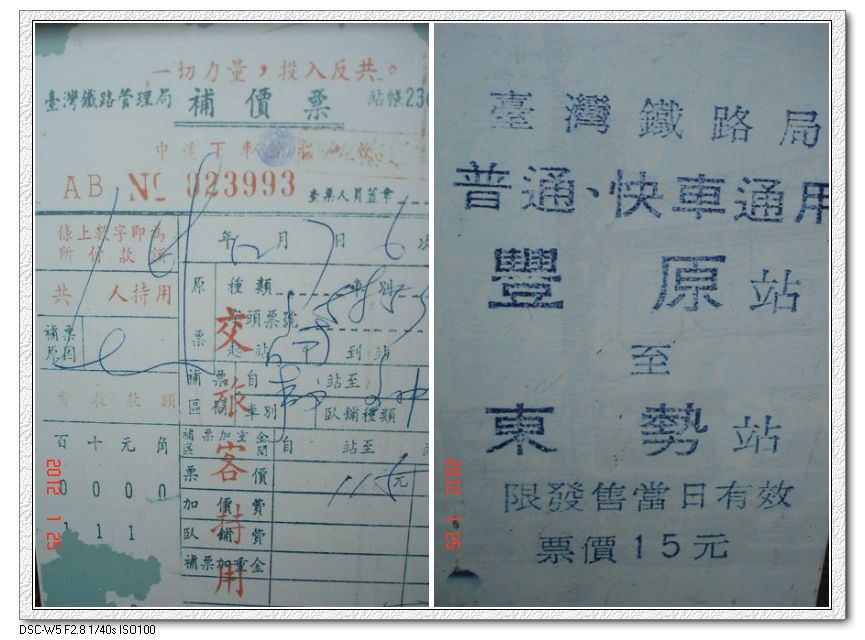 一切力量，投入反共。
臺灣鐵路管理局 補價票 站帳
中途下車
AB No 023993 查票人員蓋章
條上数字即為
所付款額
年 月 日 次
共 人持用
原票
種類 車別
票頭票號
起站 到站
補票
原因
補區
票間
自 站至
車別 臥鋪種類
實收款額
補票加重金
區間
自 站至
百 十 元 角
票價 元
0 0 0 0
加價費
1 1 1
臥鋪費
補票加重金
交旅客持用
2012 1 25
臺灣鐵路局
普通、快車通用
豐原站
至
東勢站
限發售當日有效
票價15元
2012 1 25
DSC-W5 F2.8 1/40s ISO100